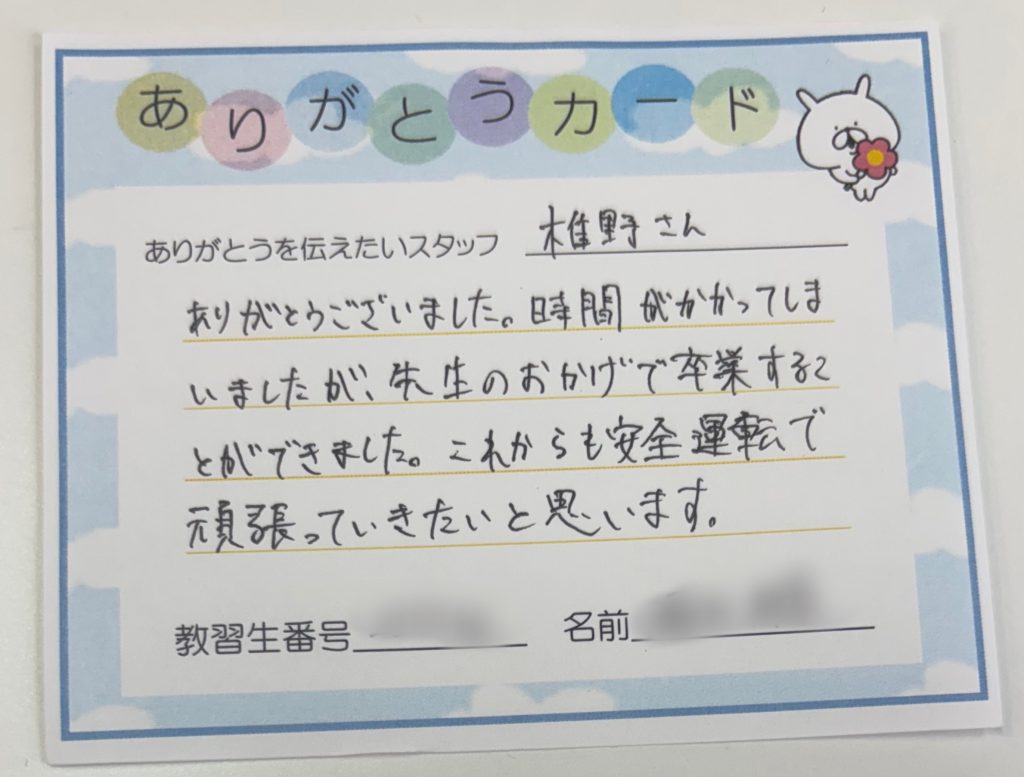 ありがとうカード
ありがとうを伝えたいスタッフ 椎野さん
ありがとうございました。時間がかかってしま
いましたが、先生のおかげで卒業するこ
とができました。これからも安全運転で
頑張っていきたいと思います。
教習生番号 名前